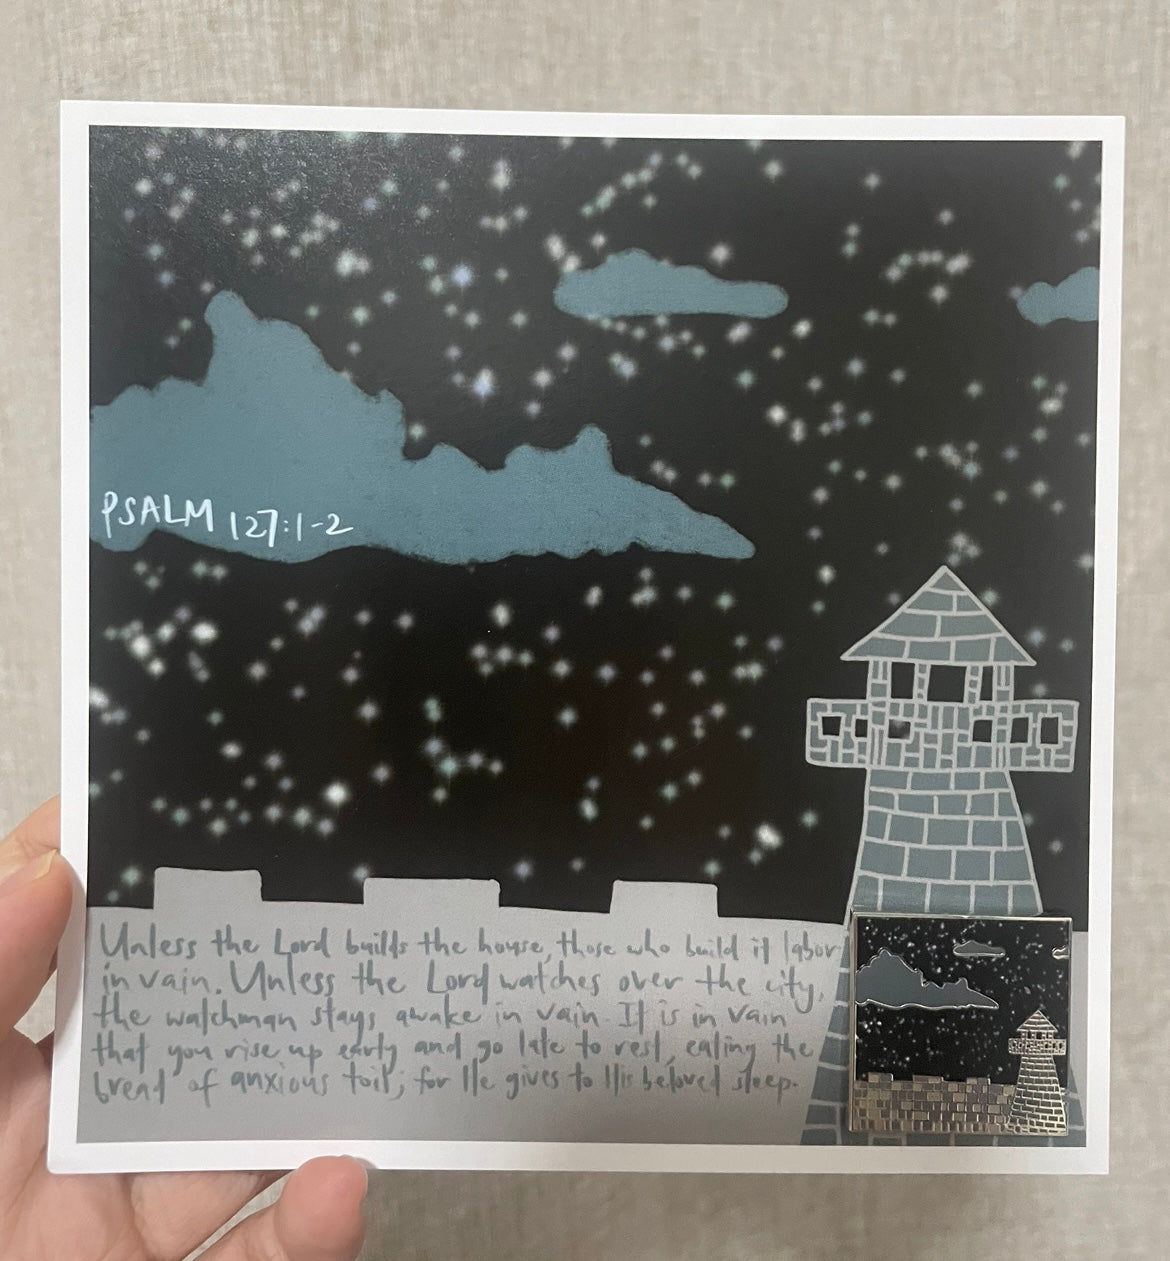 PSALM 127:1-2
Unless the Lord builds the house, those who build it labor
in vain. Unless the Lord watches over the city,
the watchman stays awake in vain. It is in vain
that you rise up early and go late to rest, eating the
bread of anxious toil; for He gives to His beloved sleep.